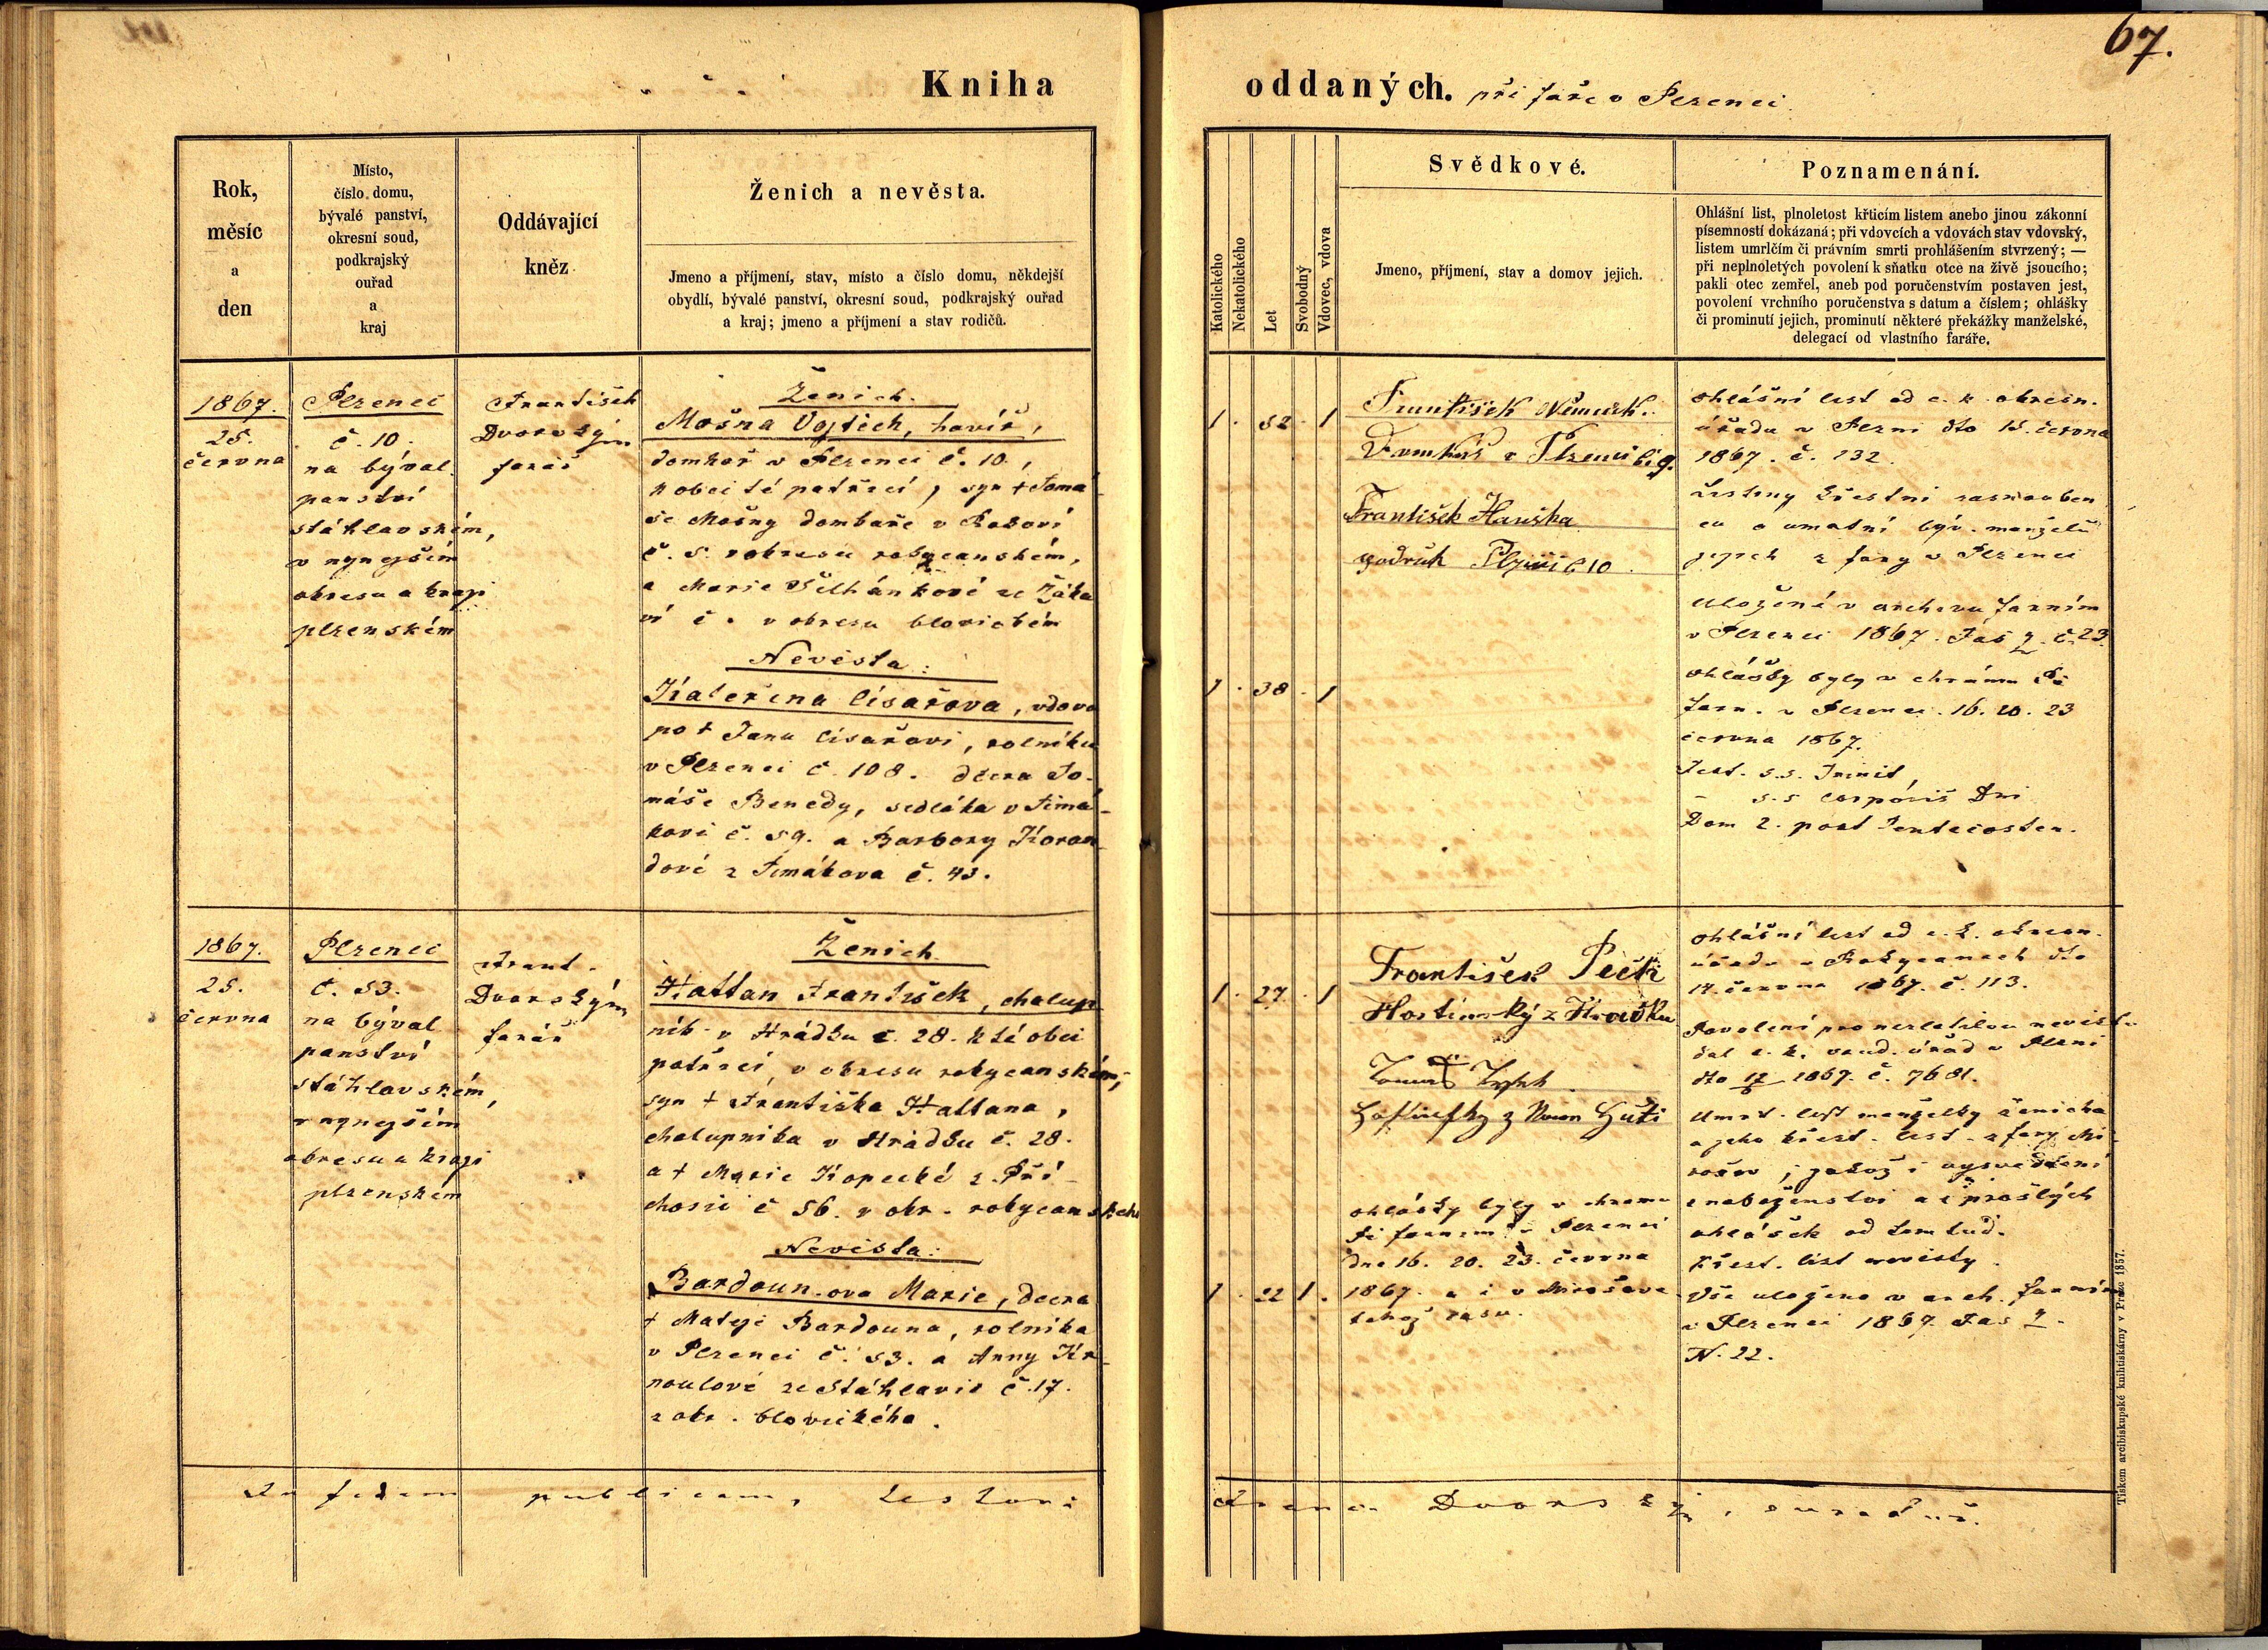 67.
Kniha oddaných. při faře v Plzenci
Rok,
měsíc
a
den
Místo,
číslo domu,
bývalé panství,
okresní soud,
podkrajský
ouřad
a
kraj
Oddávající
kněz
Ženich a nevěsta.
Jmeno a příjmení, stav, místo a číslo domu, někdejší
obydlí, bývalé panství, okresní soud, podkrajský ouřad
a kraj; jmeno a příjmení a stav rodičů.
Katolického
Nekatolického
Let
Svobodný
Vdovec, vdova
Svědkové.
Jmeno, příjmení, stav a domov jejich.
Poznamenání.
Ohlášní list, plnoletost křticím listem anebo jinou zákonní
písemností dokázaná; při vdovcích a vdovách stav vdovský,
listem umrlčím či právním smrti prohlášením stvrzený; —
při neplnoletých povolení k sňatku otce na živě jsoucího;
pakli otec zemřel, aneb pod poručenstvím postaven jest,
povolení vrchního poručenstva s datum a číslem; ohlášky
či prominutí jejich, prominutí některé překážky manželské,
delegací od vlastního faráře.
1867.
25.
června
Plzenci
č. 10.
na býval.
panství
stáhlavském,
v nynejším
okresu a kraji
plzenském
František
Dvorský
farář
Ženich.
Mošna Vojtěch, havíř,
domkař v Plzenci č. 10,
k obci té patřící, syn † Tomá-
še Mošny domkaře v
č. 5. v okresu rokycanském,
a Marie ze Žáka
vé č. v okresu blovickém
Nevěsta:
Kateřina Císařova, vdova
po † Janu Císařovi, rolníku
v Plzenci č. 108. dcera To-
máše Benedy, sedláka v Timá-
kově č. 59. a Barbory Koran-
dové z Timákova č. 43.
1 . 52 . 1
František Němeček
Domkář v Plzenci č 9.
František Hauška
podruh Plzenci č 10.
1 . 38 . 1
ohlášní list od c. k. okresn.
úřadu v Plzni dto 15. června
1867. č. 132.
Listiny křestní zasnouben
ců a úmatní býv. manželů
jejich z fary v Plzenci
uložené v archivu farním
v Plzenci 1867. Fas 2. č. 23.
ohlášky byly v chrámu Pá
farn. v Plzenci. 16. 20. 23
června 1867.
Fest. s.s. Trinit,
– s.s Corporis Dni
Dom 2. post Pentecosten.
1867.
25.
června
Plzenci
č. 53.
na býval
panství
stáhlavském,
v nynejším
okresu a kraji
plzenském
Frant.
Dvorský
farář
Ženich
Hattan František, chalup
ník v Hrádku č. 28. k té obci
patřící, v okresu rokycanském,
syn † Františka Hattana,
chalupníka v Hrádku č. 28.
a † Marie Kopecké z Pří-
chosic č 56. v okr. rokycanském
Nevěsta:
Bardoun.ova Marie, dcera
† Matěje Bardouna, rolníka
v Plzenci č. 53. a Anny Kr-
noulové ze Stáhlavic č. 17.
z okr. blovického.
1 . 27 . 1
František Pečk
Hostinský z Hrádku
Tomáš
z Huti
ohlášky byly v chramu
Pá farním v Plzenci
dne 16. 20. 23. června
1867. a i v Mirošově
téhož času.
1 . 22 1 .
ohlášní list od c. k. okresn.
úřadu v Rokycanech dto
14. června 1867. č. 113.
Povolení pro nezletilou nevěstu
dal c. k. soud. úřad v Plzni
dto 1867. č. 7681.
Umrt. list manželky ženicha
a jeho křest. list z fary Mi-
rošov, jakož i vysvědčení
z náboženství a i prošlých
ohlášek od tamtud.
Křest. list nevěsty.
Vše uloženo v arch. farním
v Plzenci 1867. Fas 2.
N. 22.
In fidem publicam, testor: Franc. Dvorský,
Tiskem arcibiskupské knihtiskárny v Praze 1857.